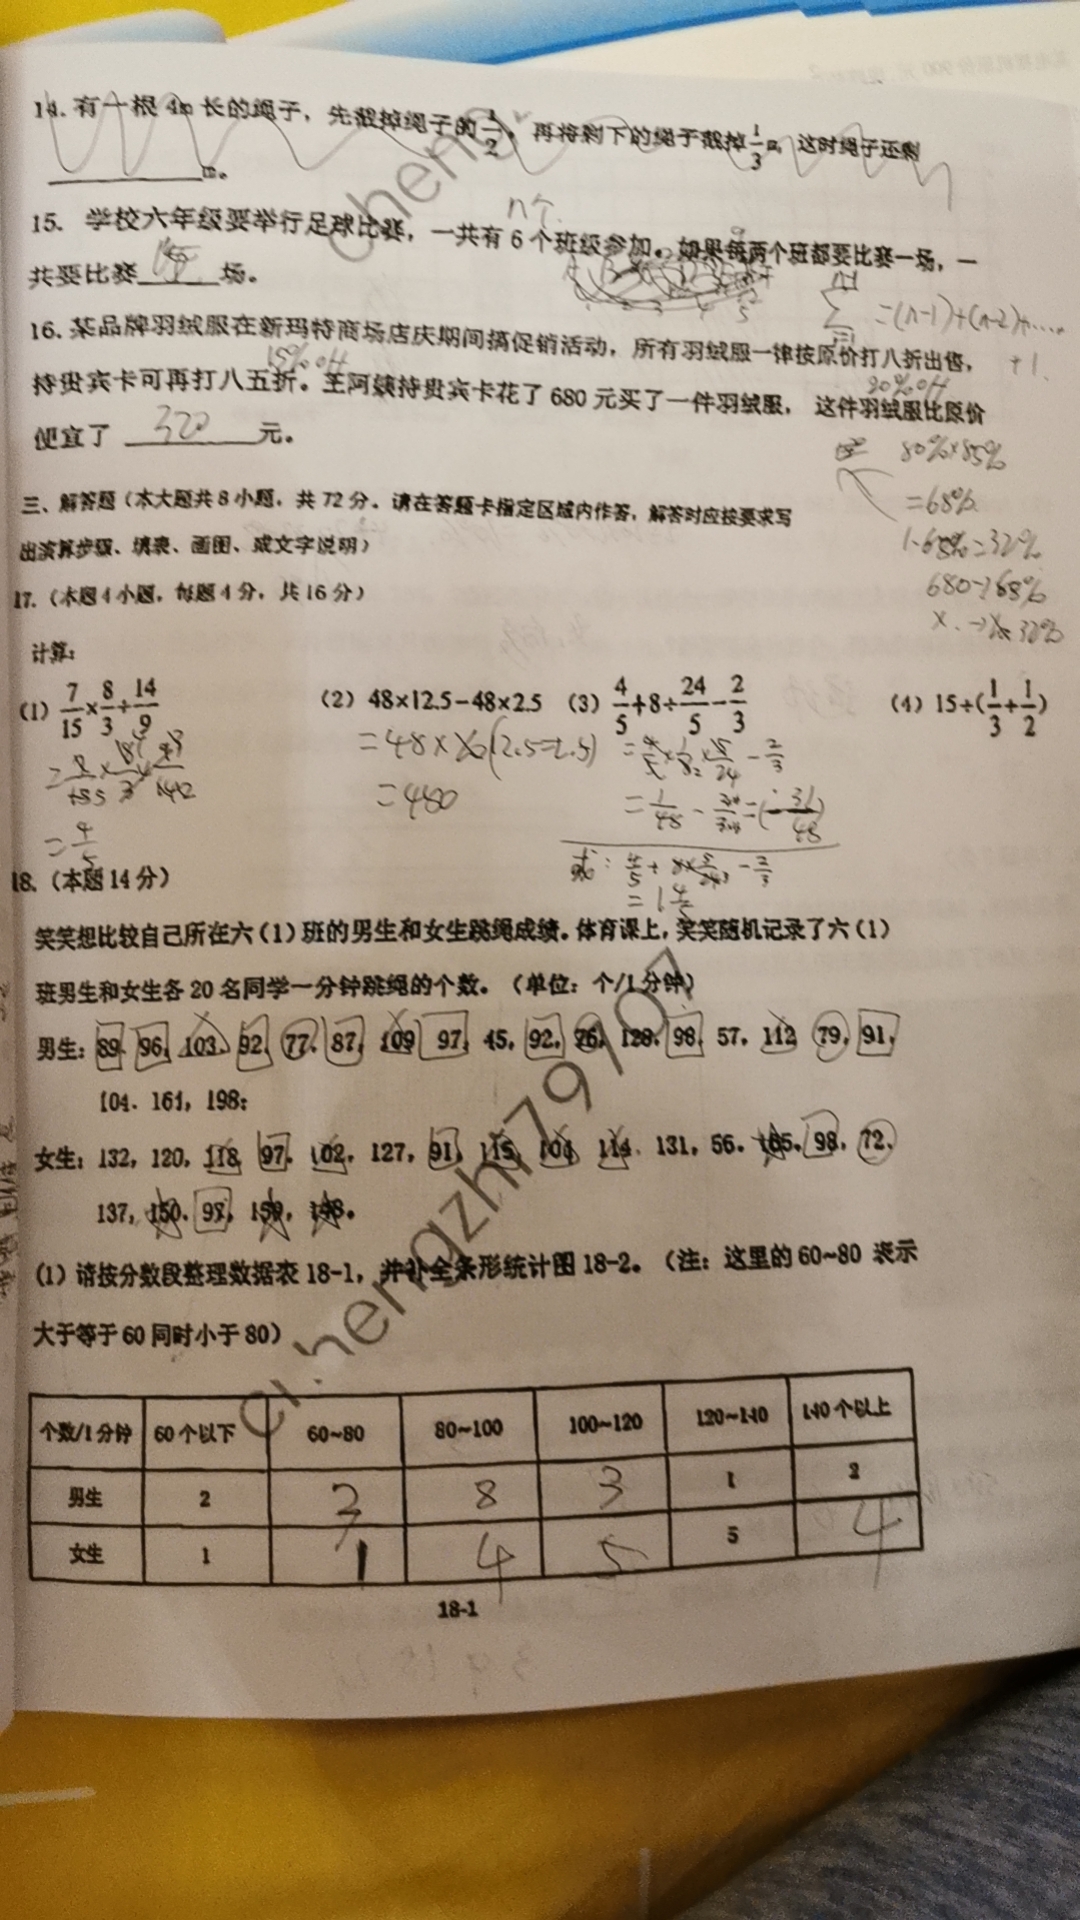 14. 有一根 4m 长的绳子，先截掉绳子的 1/2，再将剩下的绳子截掉 1/3 m，这时绳子还剩
______m。
n个
15. 学校六年级要举行足球比赛，一共有 6 个班级参加。如果每两个班都要比赛一场，一
共要比赛______场。
=(n-1)+(n-2)+……
+1.
16. 某品牌羽绒服在新玛特商场店庆期间搞促销活动，所有羽绒服一律按原价打八折出售，
15% off
20% off
持贵宾卡可再打八五折。王阿姨持贵宾卡花了 680 元买了一件羽绒服，这件羽绒服比原价
便宜了 320 元。
80%×85%
=68%
1-68%=32%
680→68%
x.→32%
三、解答题（本大题共 8 小题，共 72 分。请在答题卡指定区域内作答，解答时应按要求写
出演算步骤、填表、画图、或文字说明）
17.（本题 4 小题，每题 4 分，共 16 分）
计算：
(1) 7/15×8/3÷14/9 (2) 48×12.5-48×2.5 (3) 4/5+8÷24/5-2/3 (4) 15÷(1/3+1/2)
=4/5
=480
18.（本题 14 分）
笑笑想比较自己所在六（1）班的男生和女生跳绳成绩。体育课上，笑笑随机记录了六（1）
班男生和女生各 20 名同学一分钟跳绳的个数。（单位：个/1 分钟）
男生：89，96，103，92，77，87，109，97，45，92，76，128，98，57，112，79，91，
104，161，198；
女生：132，120，118，97，102，127，91，115，104，114，131，56，165，98，72，
137，150，97，159，148。
(1) 请按分数段整理数据表 18-1，并补全条形统计图 18-2。（注：这里的 60~80 表示
大于等于 60 同时小于 80）
个数/1 分钟 60 个以下 60~80 80~100 100~120 120~140 140 个以上
男生 2 3 8 3 1 2
女生 1 1 4 5 5 4
18-1
chengzhi79707